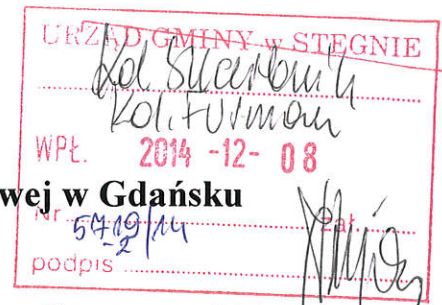 URZĄD GMINY w STEGNIE
Kol. Skarbnik
Kol. Furman
WPŁ. 2014 -12- 08
wej w Gdańsku
Nr 5719/14 zał.
-2
podpis